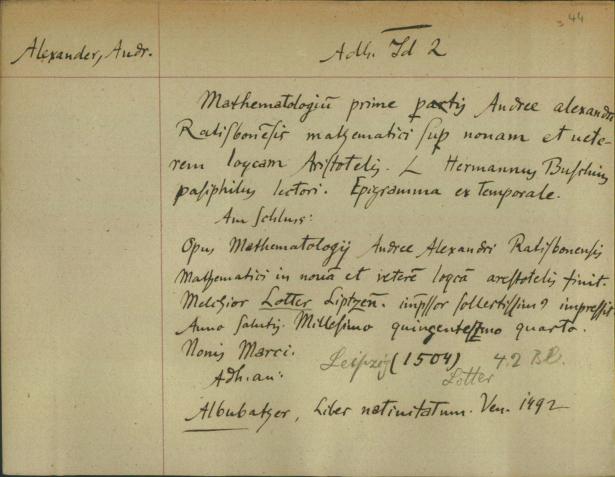 44
Alexander, Andr.
Adh. Id 2
Mathematologiū prime partis Andree alexandri
Ratisbonēsis mathematici sup nonam et uete-
rem loycam Aristotelis. L Hermannus Buschius
pasiphilus lectori. Epigramma extemporale.
Am Schluss:
Opus Mathematologij Andree Alexandri Ratisbonensis
Mathematici in nouā et veterē logcā arestotelis finit.
Melchior Lotter Liptzeñ. impssor sollertissim9 impressit
Anno salutis Millesimo quingentesimo quarto.
Nonis Marci. Leipzig (1504) 42 Bl.
Lotter
Adh. an:
Albubatzer, Liber natiuitatum. Ven. 1492